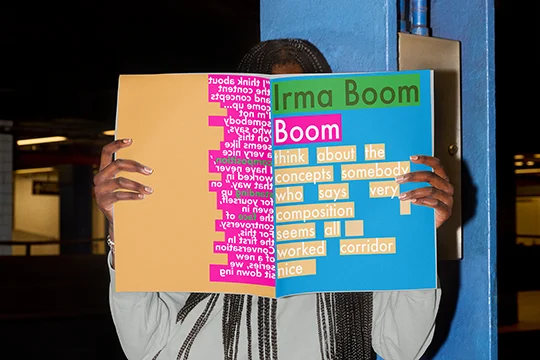 "I think about
the content
and concepts
come up...
I'm not
somebody
who says,
'oh this
seems like
a very nice
composition
I have never
worked in
that way," on
standing up
for yourself,
even in
the face of
controversy.
For this,
the first in
Conversation
of a new
series, we
sit down ing
Irma Boom
Boom
think about the
concepts somebody
who says very
composition
seems all
worked corridor
nice